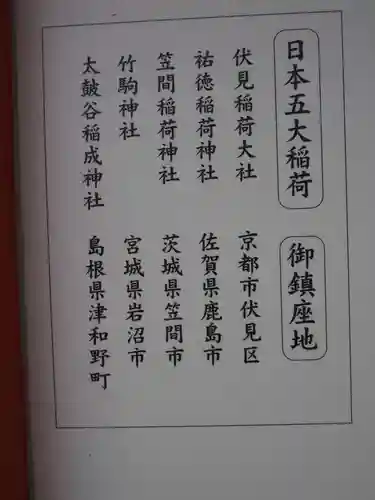 日本五大稲荷 御鎮座地
伏見稲荷大社 京都市伏見区
祐徳稲荷神社 佐賀県鹿島市
笠間稲荷神社 茨城県笠間市
竹駒神社 宮城県岩沼市
太皷谷稲成神社 島根県津和野町